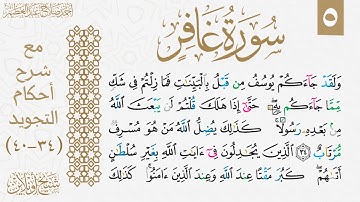 ٥
سُورَةُ غَافِرٍ
مع
شرح
أحكام
التجويد
(٣٤-٤٠)
وَلَقَدْ جَآءَكُمْ يُوسُفُ مِن قَبْلُ بِٱلْبَيِّنَٰتِ فَمَا زِلْتُمْ فِى شَكٍّ
مِّمَّا جَآءَكُم بِهِۦ ۖ حَتَّىٰٓ إِذَا هَلَكَ قُلْتُمْ لَن يَبْعَثَ ٱللَّهُ
مِنۢ بَعْدِهِۦ رَسُولًا ۚ كَذَٰلِكَ يُضِلُّ ٱللَّهُ مَنْ هُوَ مُسْرِفٌ
مُّرْتَابٌ ٣٤ ٱلَّذِينَ يُجَٰدِلُونَ فِىٓ ءَايَٰتِ ٱللَّهِ بِغَيْرِ سُلْطَٰنٍ
أَتَىٰهُمْ ۖ كَبُرَ مَقْتًا عِندَ ٱللَّهِ وَعِندَ ٱلَّذِينَ ءَامَنُوا۟ ۚ كَذَٰلِكَ